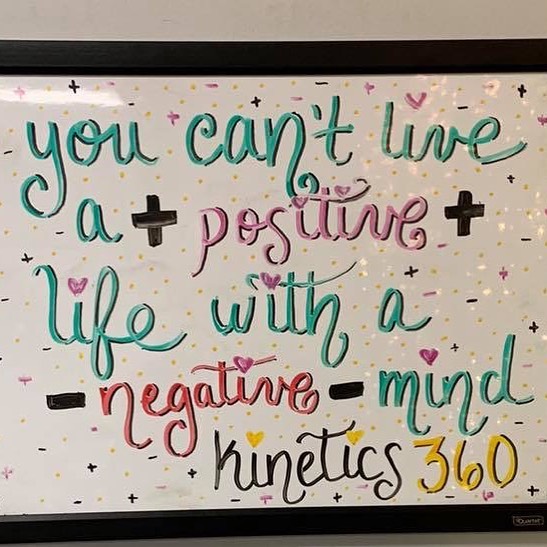 you can't live
a + positive +
life with a
- negative - mind
kinetics 360
Quartet